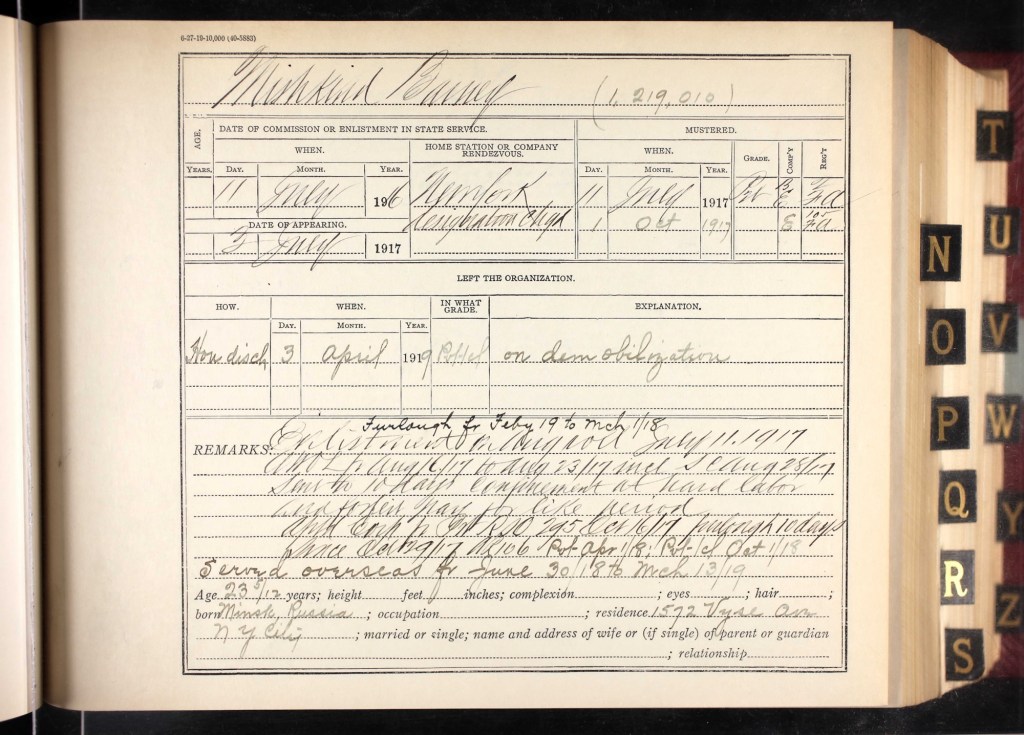 6-27-19-10,000 (40-5883)
Mishkind Barney (1,219,010)
AGE. DATE OF COMMISSION OR ENLISTMENT IN STATE SERVICE. MUSTERED.
WHEN. HOME STATION OR COMPANY RENDEZVOUS. WHEN. GRADE. COMP'Y REG'T
YEARS. DAY. MONTH. YEAR. DAY. MONTH. YEAR.
11 July 1916 New York 11 July 1917 Pvt E FA
DATE OF APPEARING. 1 Oct 1917 E 105 FA
3 July 1917
LEFT THE ORGANIZATION.
HOW. WHEN. IN WHAT GRADE. EXPLANATION.
DAY. MONTH. YEAR.
Hon disch 3 April 1919 Pvt-1cl on demobilization
Furlough fr Feby 19 to Mch 1/18
REMARKS: Enlistment July 11, 1917
AWOL fr Aug 16/17 to Aug 23/17 incl S C Aug 28/17
Sent to 10 days confinement at hard labor
and forfeit pay for like period
Corp Oct 16/17 furlough 10 days
since Oct 29/17 Pvt Apr 1/18; Pvt-1cl Oct 1/18
Served overseas fr June 30/18 to Mch 13/19
Age 23 5/12 years; height feet inches; complexion ; eyes ; hair ;
born Minsk, Russia ; occupation ; residence 1572 Vyse Ave
N Y City ; married or single; name and address of wife or (if single) of parent or guardian
; relationship
T
U
N
V
O
W
P
Q
Y
R
Z
S